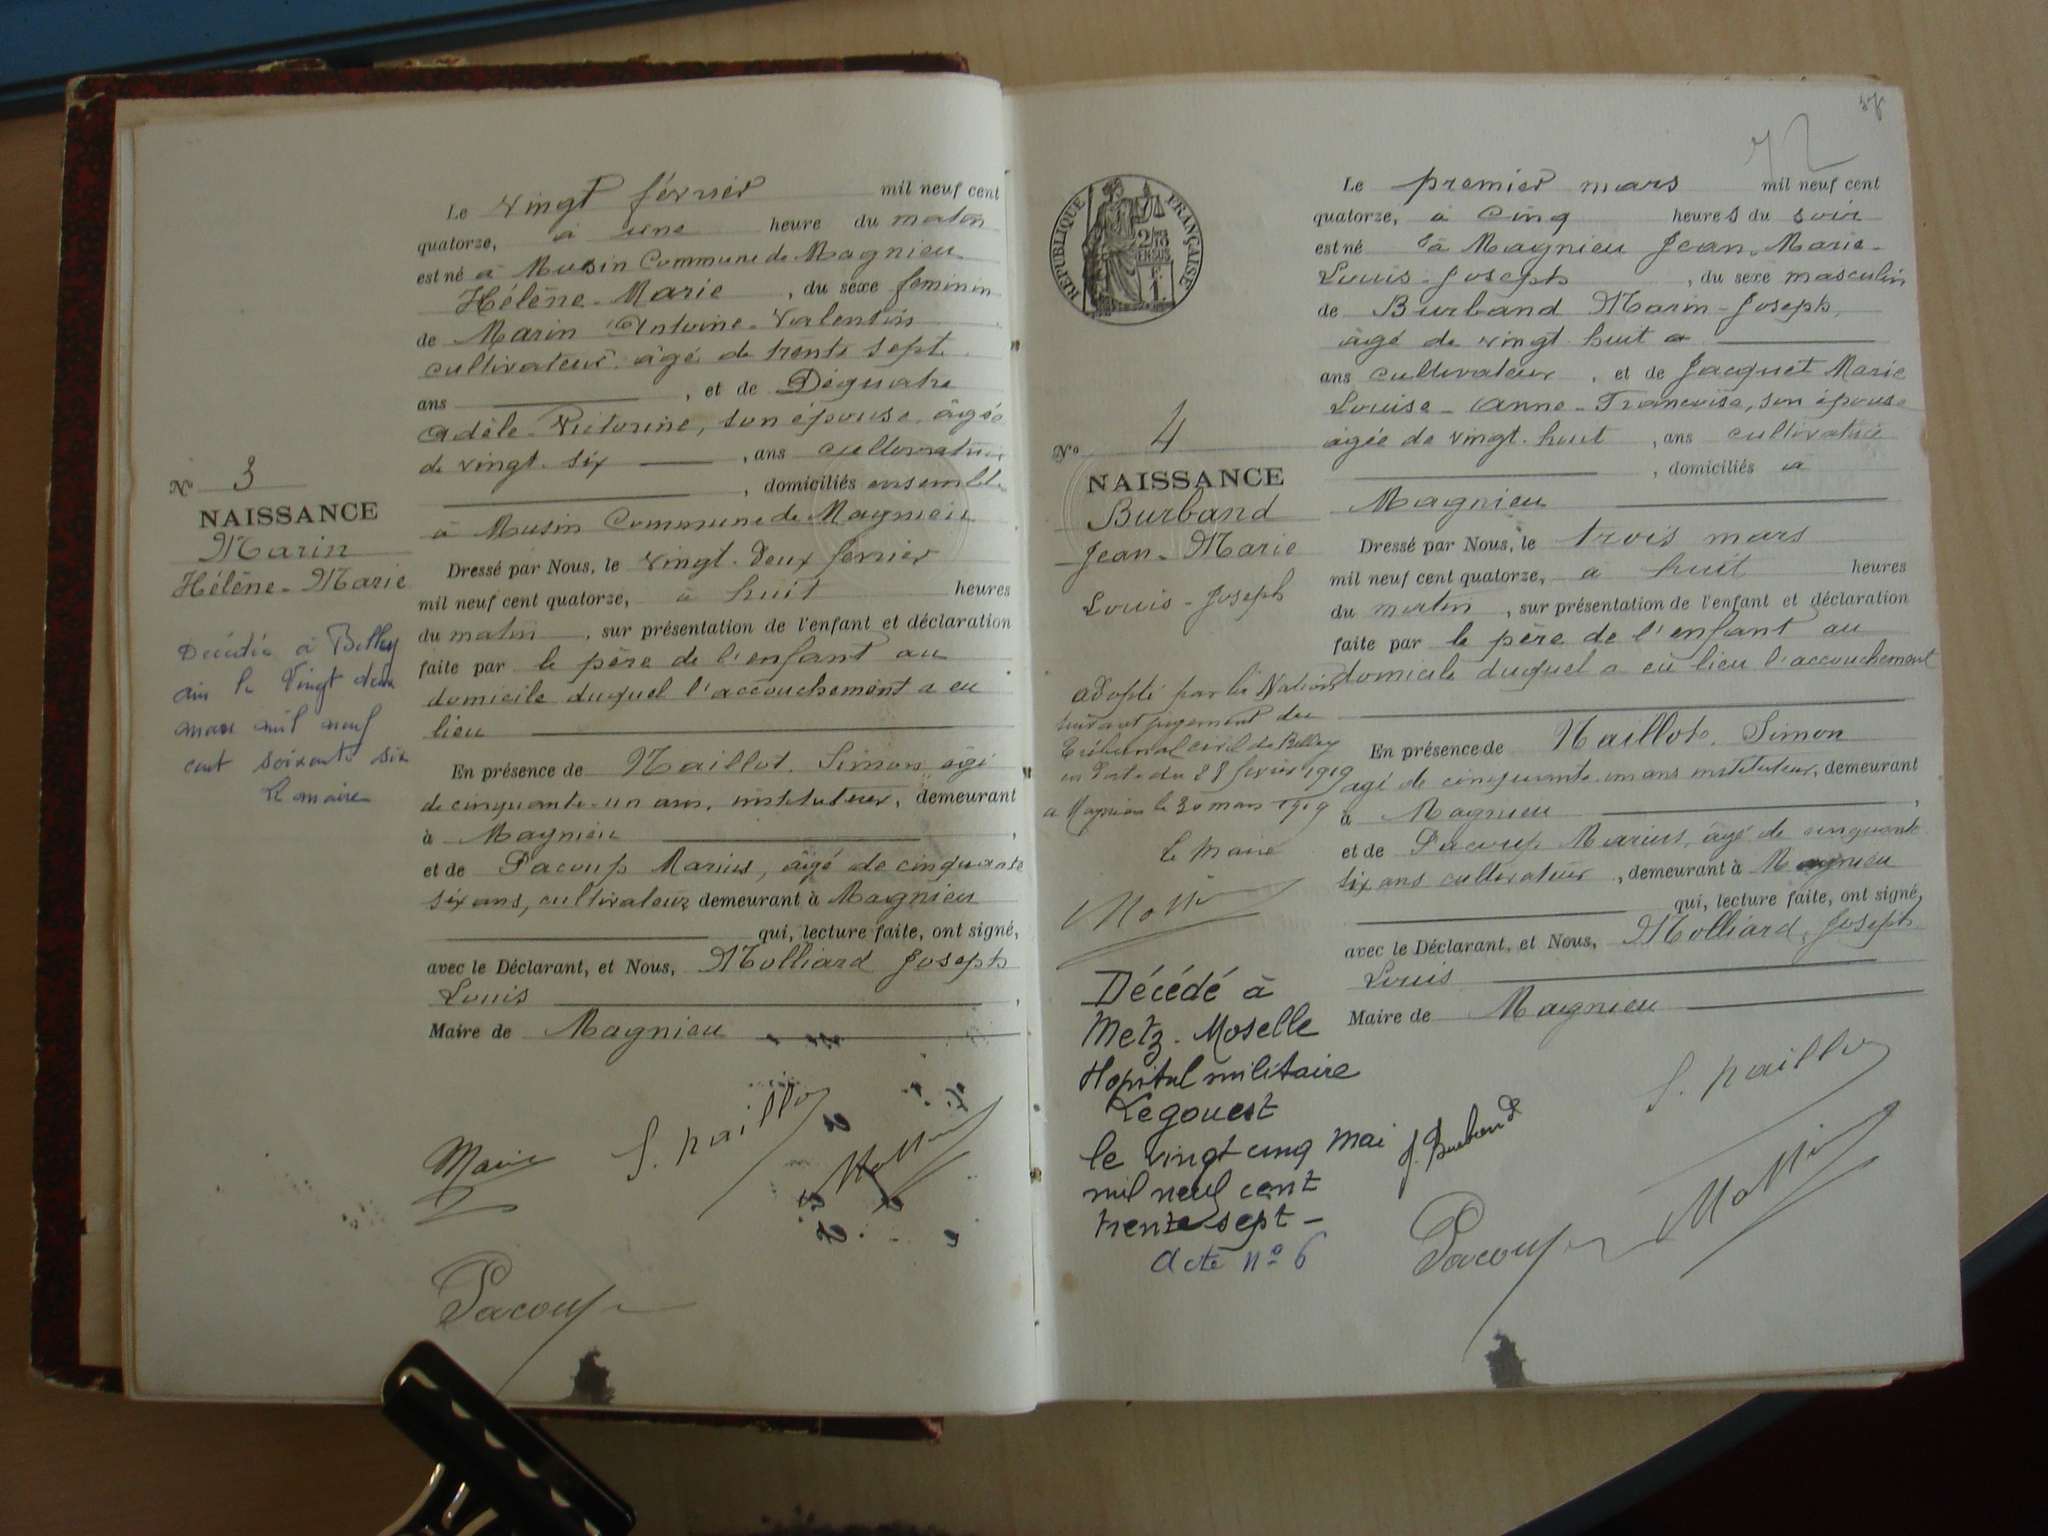 Le vingt février mil neuf cent
quatorze, à une heure du matin
est né à Musin Commune de Magnieu
Hélène-Marie, du sexe féminin
de Marin Antoine-Valentin
cultivateur, âgé de trente sept
ans, et de Déquatre
Adèle-Victorine, son épouse, âgée
de vingt-six, ans cultivatrice
, domiciliés ensemble
à Musin Commune de Magnieu
Dressé par Nous, le vingt-deux février
mil neuf cent quatorze, à huit heures
du matin, sur présentation de l'enfant et déclaration
faite par le père de l'enfant au
domicile duquel l'accouchement a eu
lieu
En présence de Naillot. Simon, âgé
de cinquante-un ans, instituteur, demeurant
à Magnieu,
et de Pacoup Marius, âgé de cinquante
six ans, cultivateur demeurant à Magnieu
qui, lecture faite, ont signé,
avec le Déclarant, et Nous, Molliard Joseph
Louis,
Maire de Magnieu
N° 3
NAISSANCE
Marin
Hélène-Marie
Décédée à Belley
ain le Vingt deux
mars mil neuf
cent soixante six
Le maire
Marin
S. Naillot
Pacoup
58
72
RÉPUBLIQUE FRANÇAISE
Le premier mars mil neuf cent
quatorze, à cinq heures du soir
est né à Magnieu Jean-Marie-
Louis-Joseph, du sexe masculin
de Burband Marin-Joseph,
âgé de vingt-huit a
ans cultivateur, et de Jacquet Marie
Louise-Anne-Françoise, son épouse
âgée de vingt-huit, ans cultivatrice
, domiciliés à
Magnieu
Dressé par Nous, le trois mars
mil neuf cent quatorze, à huit heures
du matin, sur présentation de l'enfant et déclaration
faite par le père de l'enfant au
domicile duquel a eu lieu l'accouchement
En présence de Naillot. Simon
âgé de cinquante-un ans instituteur, demeurant
à Magnieu,
et de Pacoup Marius, âgé de cinquante
six ans cultivateur, demeurant à Magnieu
qui, lecture faite, ont signé,
avec le Déclarant, et Nous, Molliard, Joseph
Louis
Maire de Magnieu
N° 4
NAISSANCE
Burband
Jean-Marie
Louis-Joseph
adopté par la Nation
suivant jugement du
Tribunal civil de Belley
en date du 28 février 1919
a Magnieu le 30 mars 1919
le Maire
Décédé à
Metz. Moselle
Hopital militaire
Legouest
le vingt cinq mai
mil neuf cent
trente sept -
acte n° 6
J. Burband
S. Naillot
Pacoup